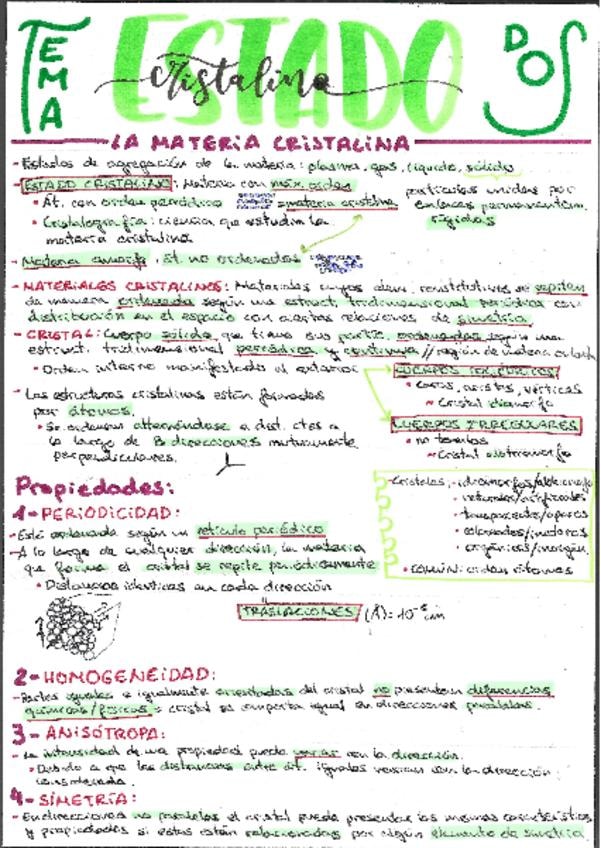 TEMA
ESTADO
cristalino
DOS
LA MATERIA CRISTALINA
- Estados de agregación de la materia: plasma, gas, líquido, sólido
- ESTADO CRISTALINO: Materia con máx. orden
partículas unidas por
• At. con orden periódico = materia cristalina
enlaces
rígidas
• Cristalografía: ciencia que estudia la
materia cristalina
- Materia amorfa, at. no ordenados
- MATERIALES CRISTALINOS: Materiales cuyos elem. constitutivos se repiten
de manera ordenada según una estruct. tridimensional periódica con
distribución en el espacio con ciertas relaciones de simetría.
- CRISTAL: Cuerpo sólido que tiene sus partíc. ordenadas según una
estruct. tridimensional periódica y continua // región de materia
• Orden interno manifestado al exterior
CUERPOS
• caras, aristas, vértices
~ Cristal
- Las estructuras cristalinas están formadas
por átomos.
CUERPOS IRREGULARES
• Se ordenan alternándose a dist. ctes a
lo largo de 3 direcciones mutuamente
perpendiculares.
• no
~ Cristal
Propiedades:
- Cristales
1- PERIODICIDAD:
- Está ordenada según un retículo periódico
- A lo largo de cualquier dirección, la materia
que forma el cristal se repite periódicamente
• Distancias idénticas en cada dirección
• naturales/artificiales
• transparentes/opacos
• coloreados/incoloros
• orgánicos/inorgán.
• COMÚN: orden átomos
TRASLACIONES (Å) = 10⁻⁸ cm
2- HOMOGENEIDAD:
- Partes iguales e igualmente orientadas del cristal no presentan diferencias
químicas/físicas = cristal se comporta igual en direcciones paralelas.
3- ANISÓTROPA:
- La intensidad de una propiedad puede variar con la dirección.
• Debido a que las distancias entre át. iguales varían con la dirección
considerada.
4- SIMETRÍA:
- En direcciones no paralelas el cristal puede presentar las mismas características
y propiedades si estas están relacionadas por algún elemento de simetría